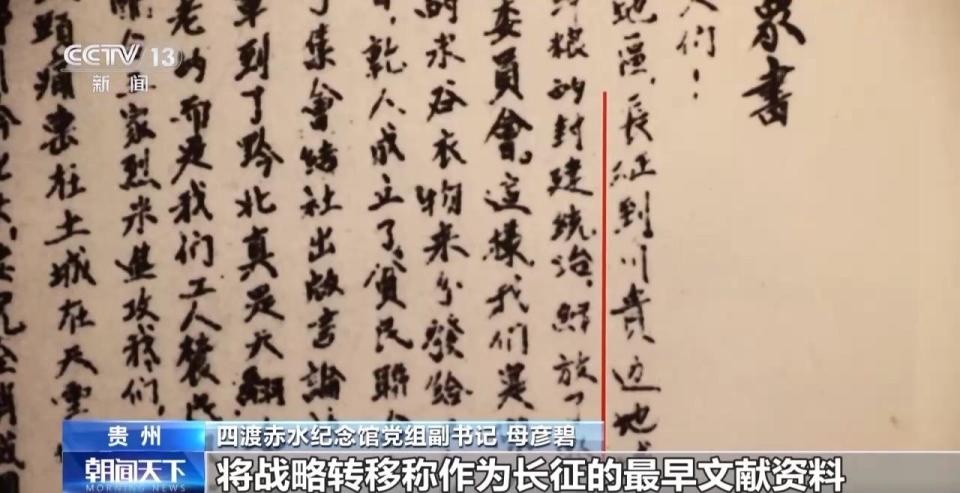 CCTV 13
新闻
眾書
人们！
地區，長征到川貴边地
粮的封建统治，解放了
委員會。這樣我们是
的求谷衣物来分發给
乾人成立了貧民聯
了集會结社出版言論
到了黔北真是天翻
老的而是我们工人農
家烈米進攻我们
在土城在天雲
贵州 四渡赤水纪念馆党组副书记 母彦碧
朝闻天下
MORNING NEWS
将战略转移称作为长征的最早文献资料